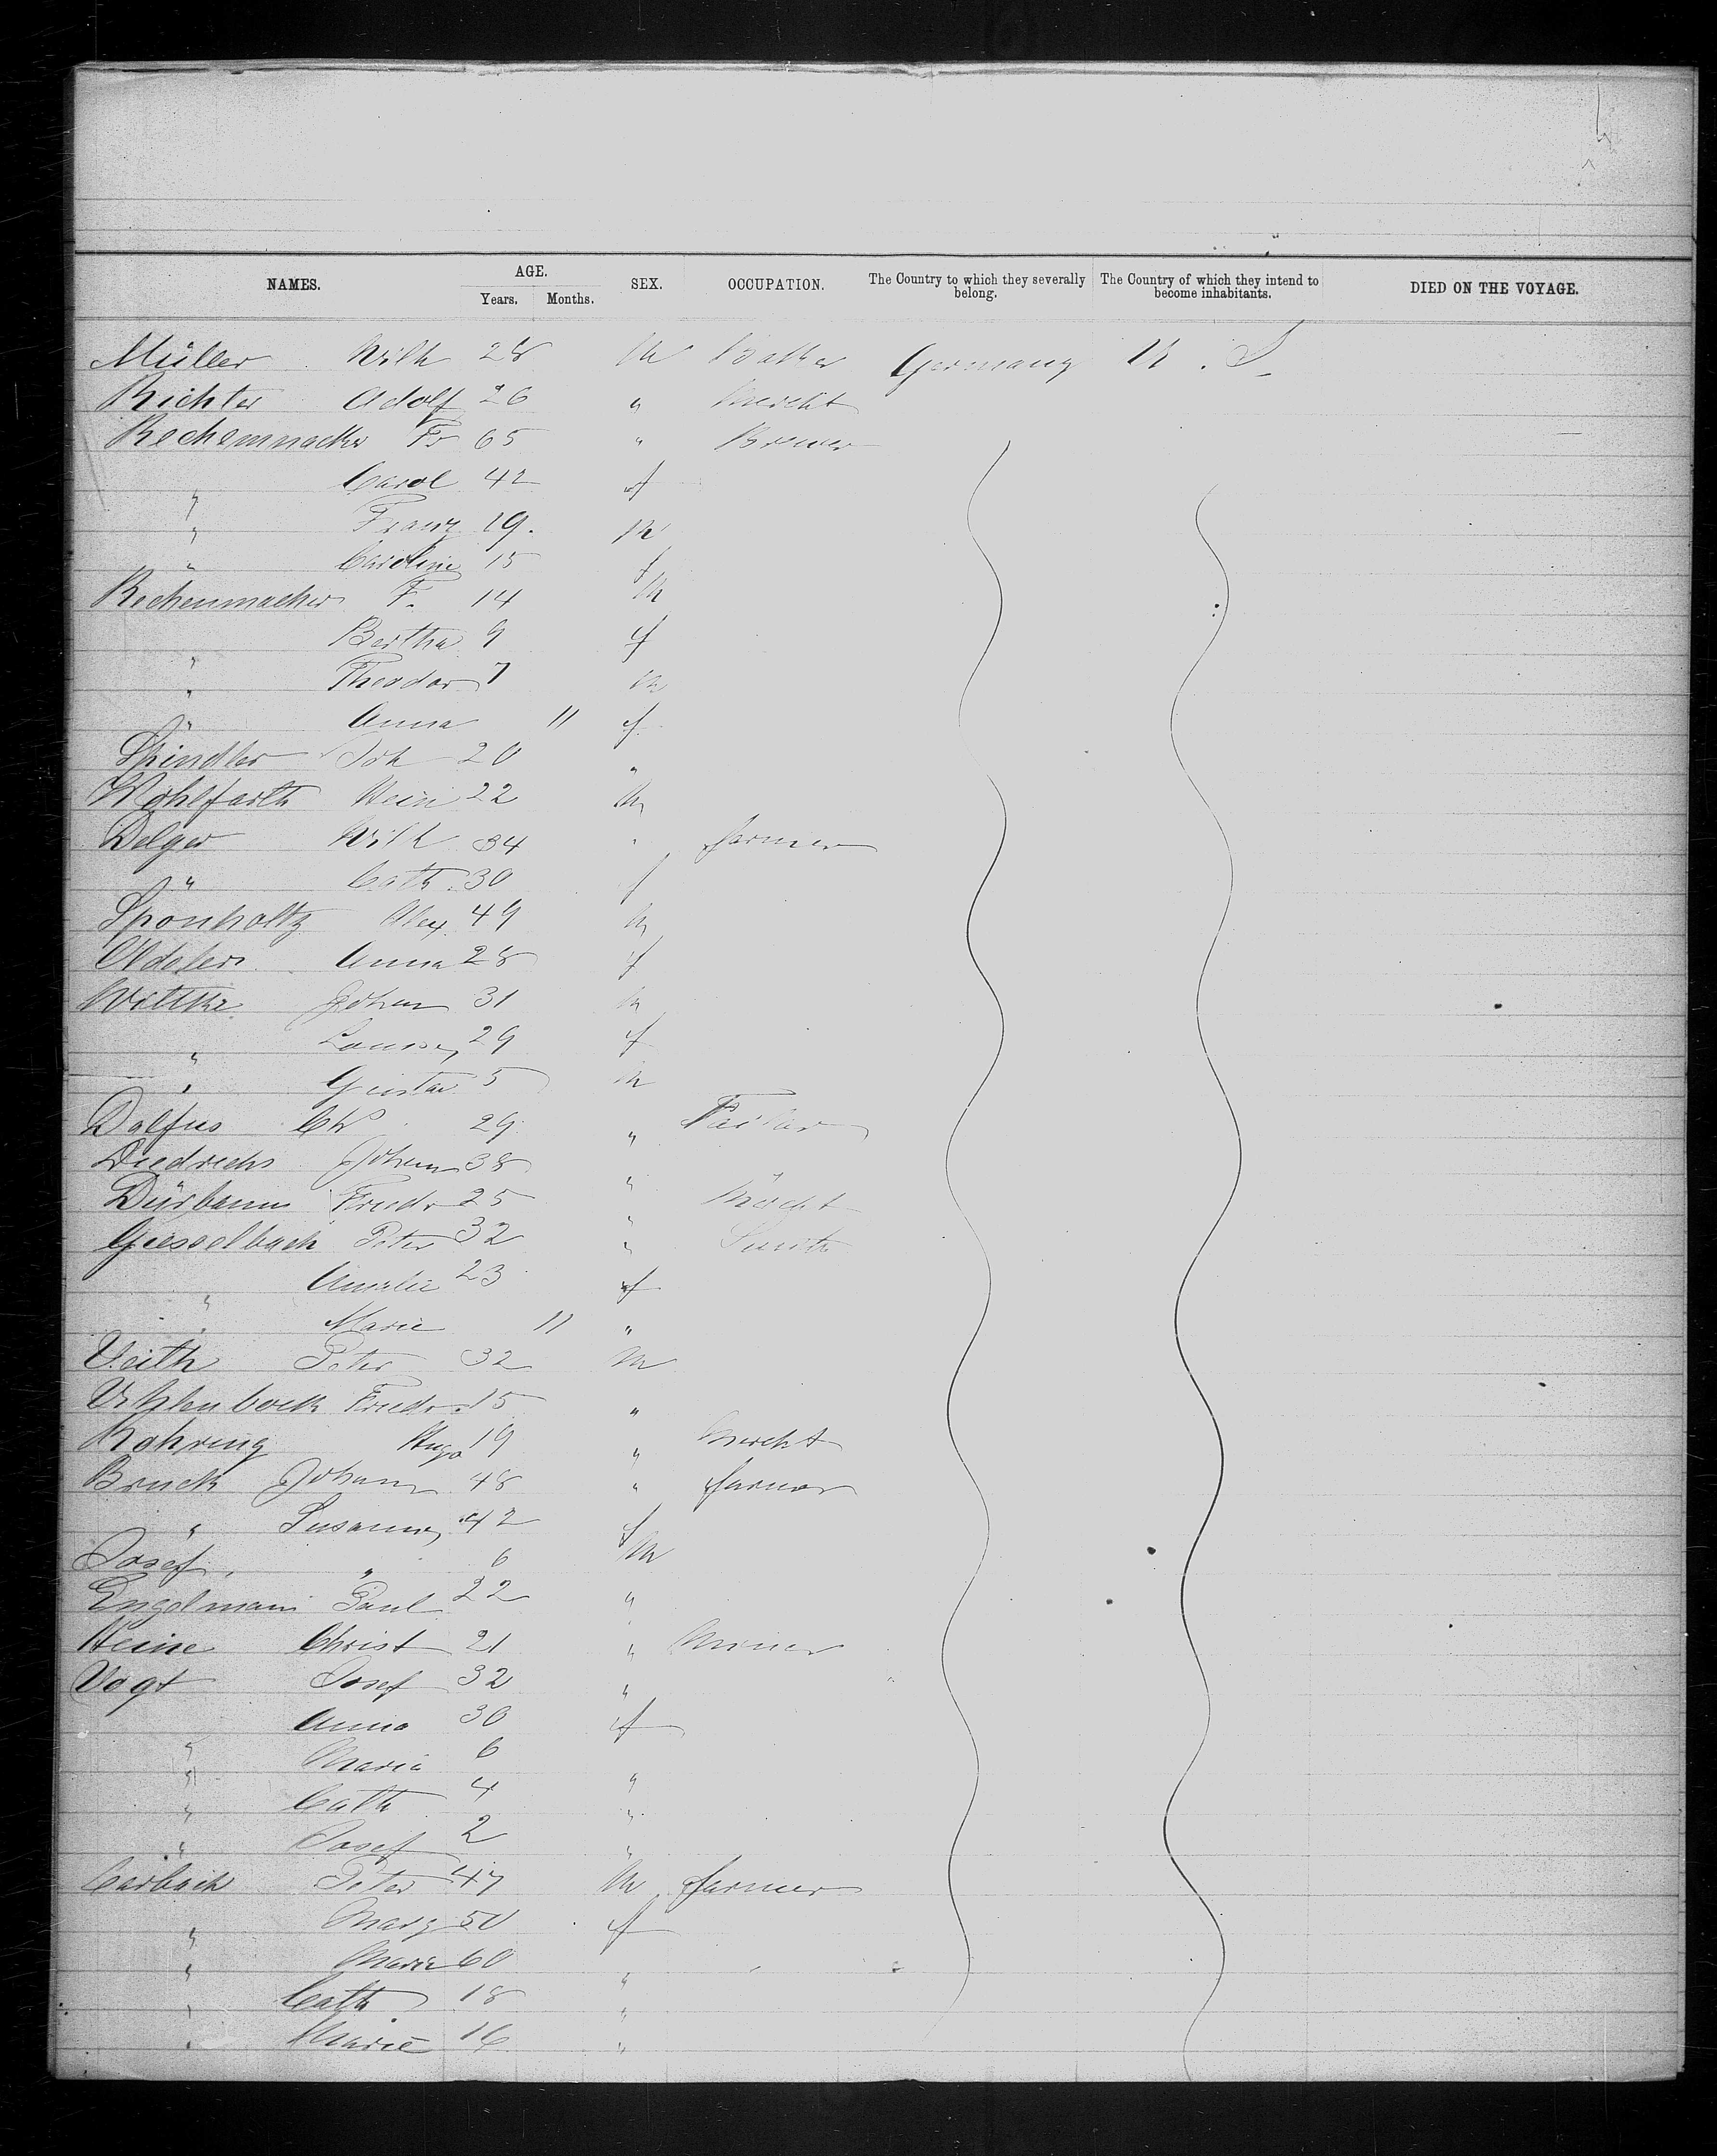 NAMES. AGE. Years. Months. SEX. OCCUPATION. The Country to which they severally belong. The Country of which they intend to become inhabitants. DIED ON THE VOYAGE.
Müller Wilh 28 M Germany U. S.
Richter Adolf 26 " Mercht
Rechenmacker Fr 65 " Brewer
" Carol 42 f
" Franz 19. M
" Caroline 15 f
Rechenmacher F. 14 M
" Bertha 9 f
" Theodor 7 M
" Anna 11 f
Spindler Joh 20 "
Wohlfarth Hein 22 M
Delger Wilh 34 " farmer
" Cath. 30 f
Sponholtz Alex. 49 M
Anna 28 f
Wittke Johan 31 M
" Louise 29 f
" Gustav 5 M
Dolfus Ch 29 " Tailor
Diedrichs Johan 38 "
Dürbaum Friedr 25 "
Giesselbach Peter 32 " Smith
" Amalie 23 f
" Marie 11 "
Veith Peter 32 M
Friedr. 15 "
Rohring Hugo 19 " Mercht
Bruck Johann 48 " farmer
" Susanna 42 f
Josef " 6 M
Engelmann Paul 22 "
Heine Christ 21 " Miner
Vogt Josef 32 "
" Anna 30 f
" Maria 6 "
" Cath 4 "
" Josef 2 "
Carbach Peter 47 M farmer
" Marg 50 f
" Marie 60 "
" Cath 18 "
" Marie 16 "